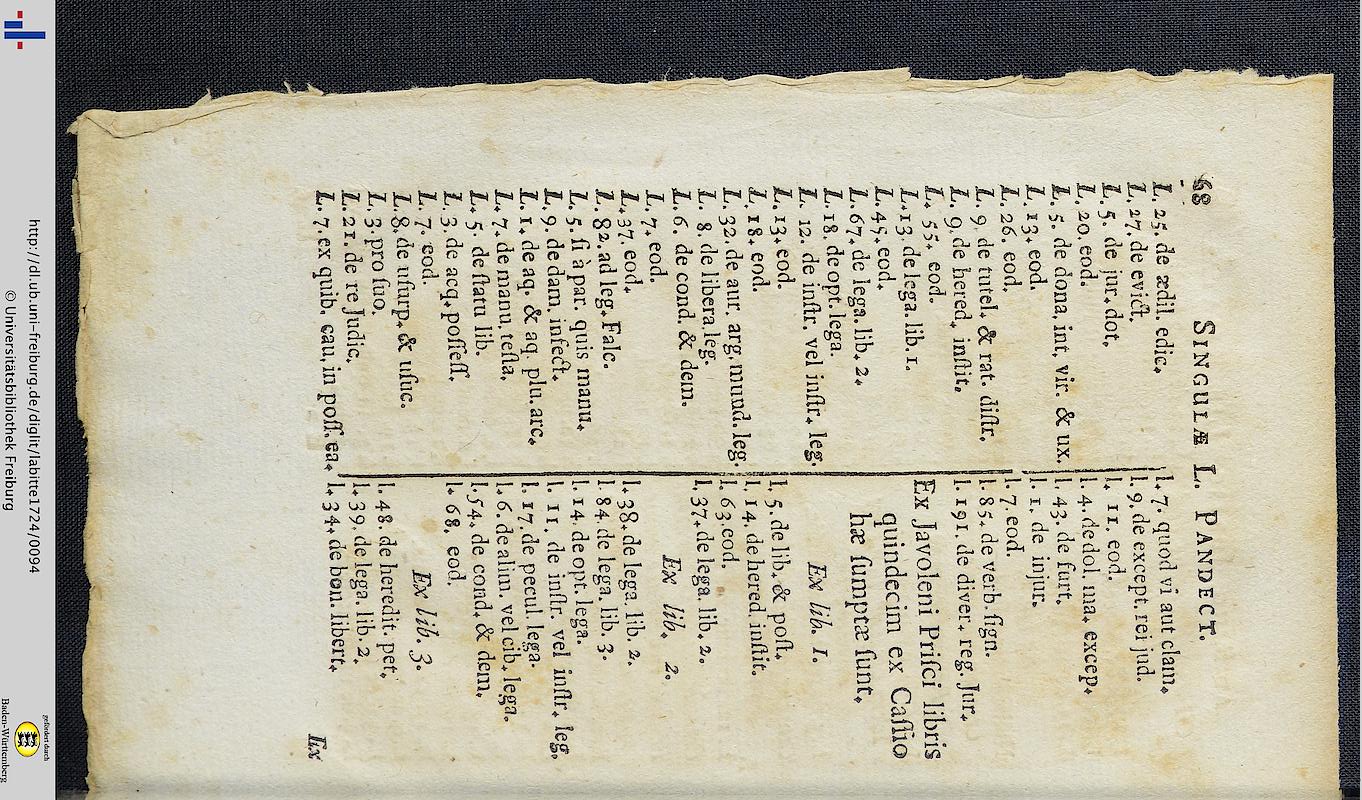 68 SINGULÆ L. PANDECT.
L. 25. de ædil. edic.
L. 27. de evict.
L. 5. de jur. dot.
L. 20. eod.
L. 5. de dona. int. vir. & ux.
L. 13. eod.
L. 26. eod.
L. 9. de tutel. & rat. distr.
L. 9. de hered. instit.
L. 55. eod.
L. 13. de lega. lib. 1.
L. 45. eod.
L. 67. de lega. lib. 2.
L. 18. de opt. lega.
L. 12. de instr. vel instr. leg.
L. 13. eod.
L. 18. eod.
L. 32. de aur. arg. mund. leg.
L. 8. de libera leg.
L. 6. de cond. & dem.
L. 7. eod.
L. 37. eod.
L. 82. ad leg. Falc.
L. 5. si à par. quis manu.
L. 9. de dam. infect.
L. 1. de aq. & aq. plu. arc.
L. 7. de manu. testa.
L. 5. de statu lib.
L. 3. de acq. possess.
L. 7. eod.
L. 8. de usurp. & usuc.
L. 3. pro suo.
L. 21. de re Judic.
L. 7. ex quib. cau. in poss. ea.
l. 7. quod vi aut clam.
l. 9. de except. rei jud.
l. 11. eod.
l. 4. de dol. ma. excep.
l. 43. de furt.
l. 1. de injur.
l. 7. eod.
l. 85. de verb. sign.
l. 191. de diver. reg. Jur.
Ex Javoleni Prisci libris
quindecim ex Cassio
hæ sumptæ sunt.
Ex lib. 1.
l. 5. de lib. & post.
l. 14. de hered. instit.
l. 63. eod.
l. 37. de lega. lib. 2.
Ex lib. 2.
l. 38. de lega. lib. 2.
l. 84. de lega. lib. 3.
l. 14. de opt. lega.
l. 11. de instr. vel instr. leg.
l. 17. de pecul. lega.
l. 6. de alim. vel cib. lega.
l. 54. de cond. & dem.
l. 68. eod.
Ex lib. 3.
l. 48. de heredit. pet.
l. 39. de lega. lib. 2.
l. 34. de bon. libert.
Ex
http://dl.ub.uni-freiburg.de/diglit/labitte1724/0094
© Universitätsbibliothek Freiburg
gefördert durch
Baden-Württemberg